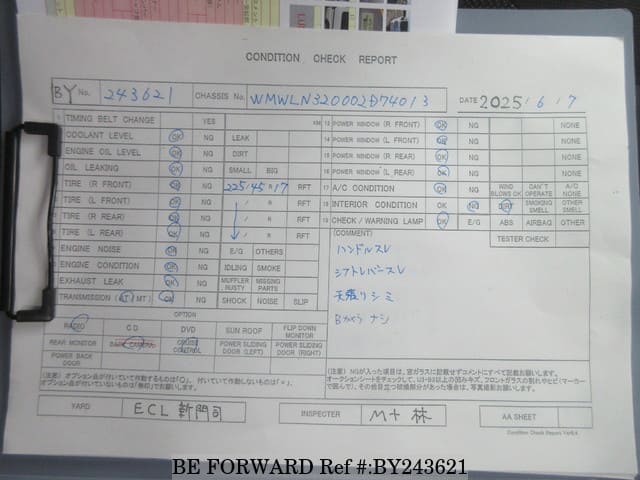 CONDITION CHECK REPORT
BY No. 243621 CHASSIS No. WMWLN320002D74013 DATE 2025/6/7
TIMING BELT CHANGE YES KM 13 POWER WINDOW (R FRONT) OK NG NONE
COOLANT LEVEL OK NG LEAK 14 POWER WINDOW (L FRONT) OK NG NONE
ENGINE OIL LEVEL OK NG DIRT 15 POWER WINDOW (R REAR) OK NG NONE
OIL LEAKING OK NG SMALL BIG 16 POWER WINDOW (L REAR) OK NG NONE
TIRE (R FRONT) OK NG 225/45 R 17 RFT 17 A/C CONDITION OK NG WIND BLOWS OK CAN'T OPERATE A/C NONE
TIRE (L FRONT) OK NG / R RFT 18 INTERIOR CONDITION OK NG DIRT SMOKING SMELL OTHER SMELL
TIRE (R REAR) OK NG / R RFT 19 CHECK / WARNING LAMP OK E/G ABS AIRBAG OTHER
TIRE (L REAR) OK NG / R RFT TESTER CHECK
ENGINE NOISE OK NG E/G OTHERS (COMMENT)
ENGINE CONDITION OK NG IDLING SMOKE ハンドルスレ
EXHAUST LEAK OK NG MUFFLER RUSTY MISSING PARTS シフトレバースレ
TRANSMISSION (AT / MT) OK NG SHOCK NOISE SLIP 天張りシミ
OPTION Bカメラ ナシ
RADIO CD DVD SUN ROOF FLIP DOWN MONITOR
REAR MONITOR BACK CAMERA CRUISE CONTROL POWER SLIDING DOOR (LEFT) POWER SLIDING DOOR (RIGHT)
POWER BACK DOOR
(注意) オプション品が付いていて作動するものは「○」、付いていて作動しないものは「×」、
オプション品が付いていないものは「無印」でお願いします。
(注意) NGが入った項目は、空ガラスに記載せずコメントにすべて記載お願いします。
YARD ECL 新門司 INSPECTER M十 林 AA SHEET
Condition Check Report Ver6.4
BE FORWARD Ref #:BY243621